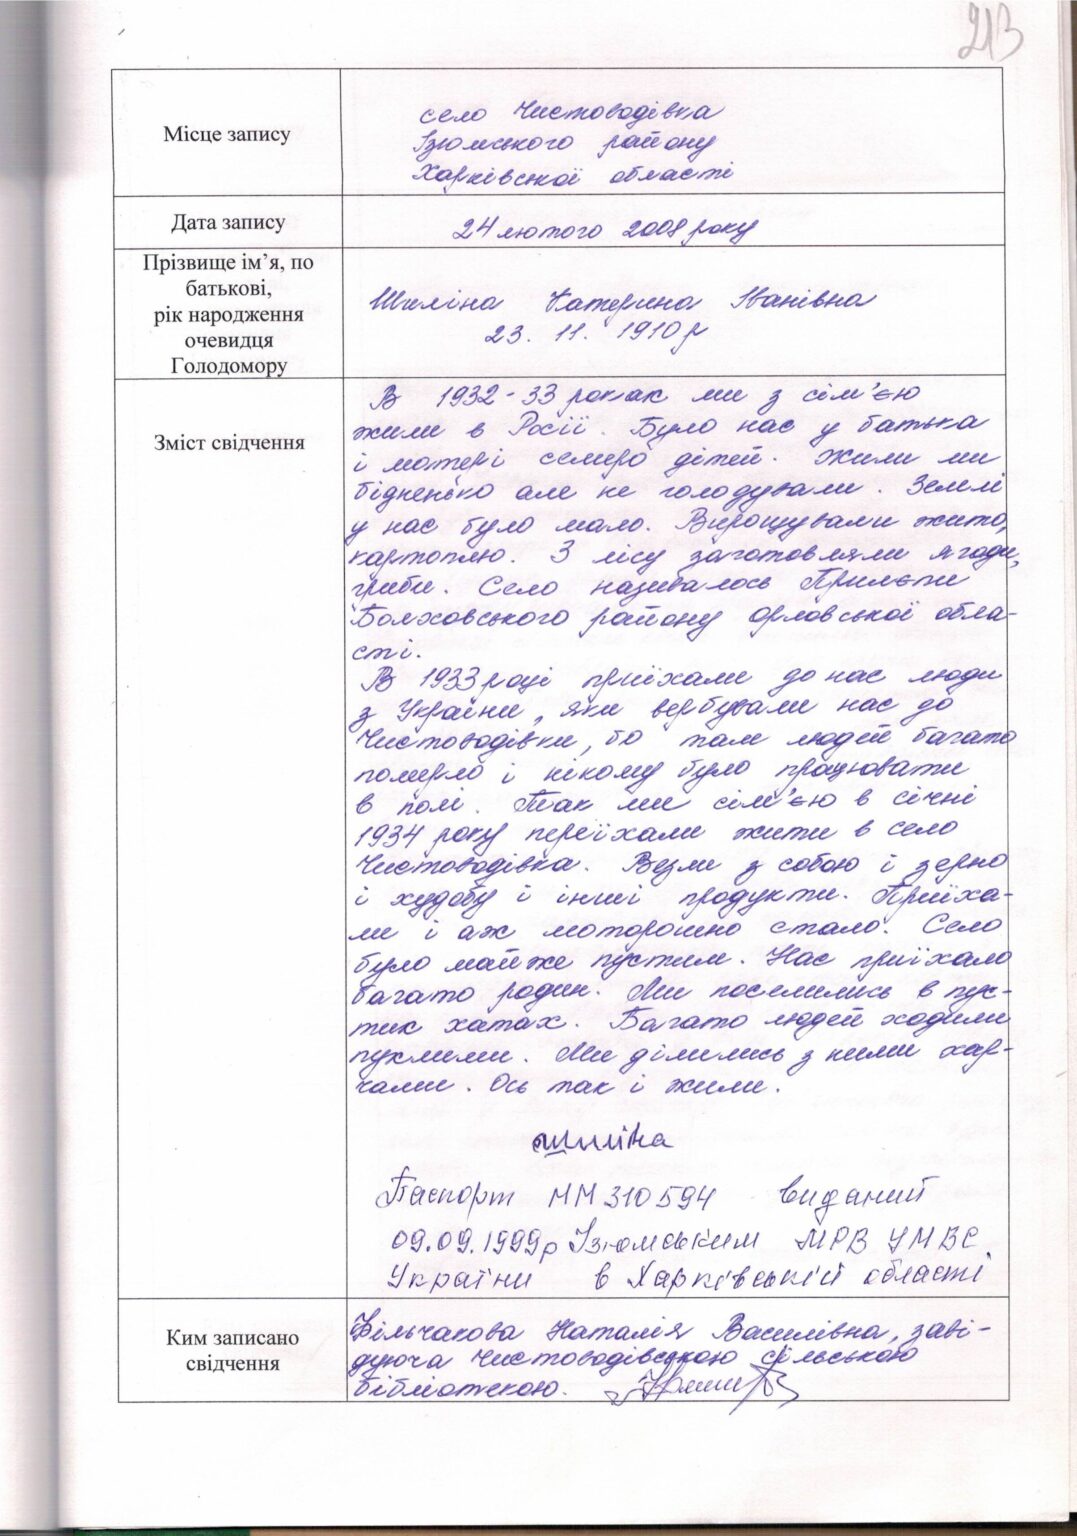 213
Місце запису
село Чистоводівка
Ізюмського району
Харківської області
Дата запису
24 лютого 2008 року
Прізвище ім’я, по
батькові,
рік народження
очевидця
Голодомору
Шиліна Катерина Іванівна
23. 11. 1910р
Зміст свідчення
В 1932-33 роках ми з сім'єю
жили в Росії. Було нас у батька
і матері семеро дітей. Жили ми
бідненько але не голодували. Землі
у нас було мало. Вирощували жито,
картоплю. З лісу заготовляли ягоди,
гриби. Село називалось Прилєпи
Болховського району орловської обла-
сті.
В 1933 році приїхали до нас люди
з України, які вербували нас до
Чистоводівки, бо там людей багато
померло і нікому було працювати
в полі. Так ми сім'єю в січні
1934 року переїхали жити в село
Чистоводівка. Везли з собою і зерно
і худобу і інші продукти. Приїха-
ли і аж моторошно стало. Село
було майже пустим. Нас приїхало
багато родин. Ми поселились в пус-
тих хатах. Багато людей ходили
пухлими. Ми ділились з ними хар-
чами. Ось так і жили.
Шиліна
Паспорт ММ 310594 виданий
09.09.1999р Ізюмським МРВ УМВС
України в Харківській області
Ким записано
свідчення
Фільчакова Наталія Василівна, заві-
дуюча Чистоводівською сільською
бібліотекою.